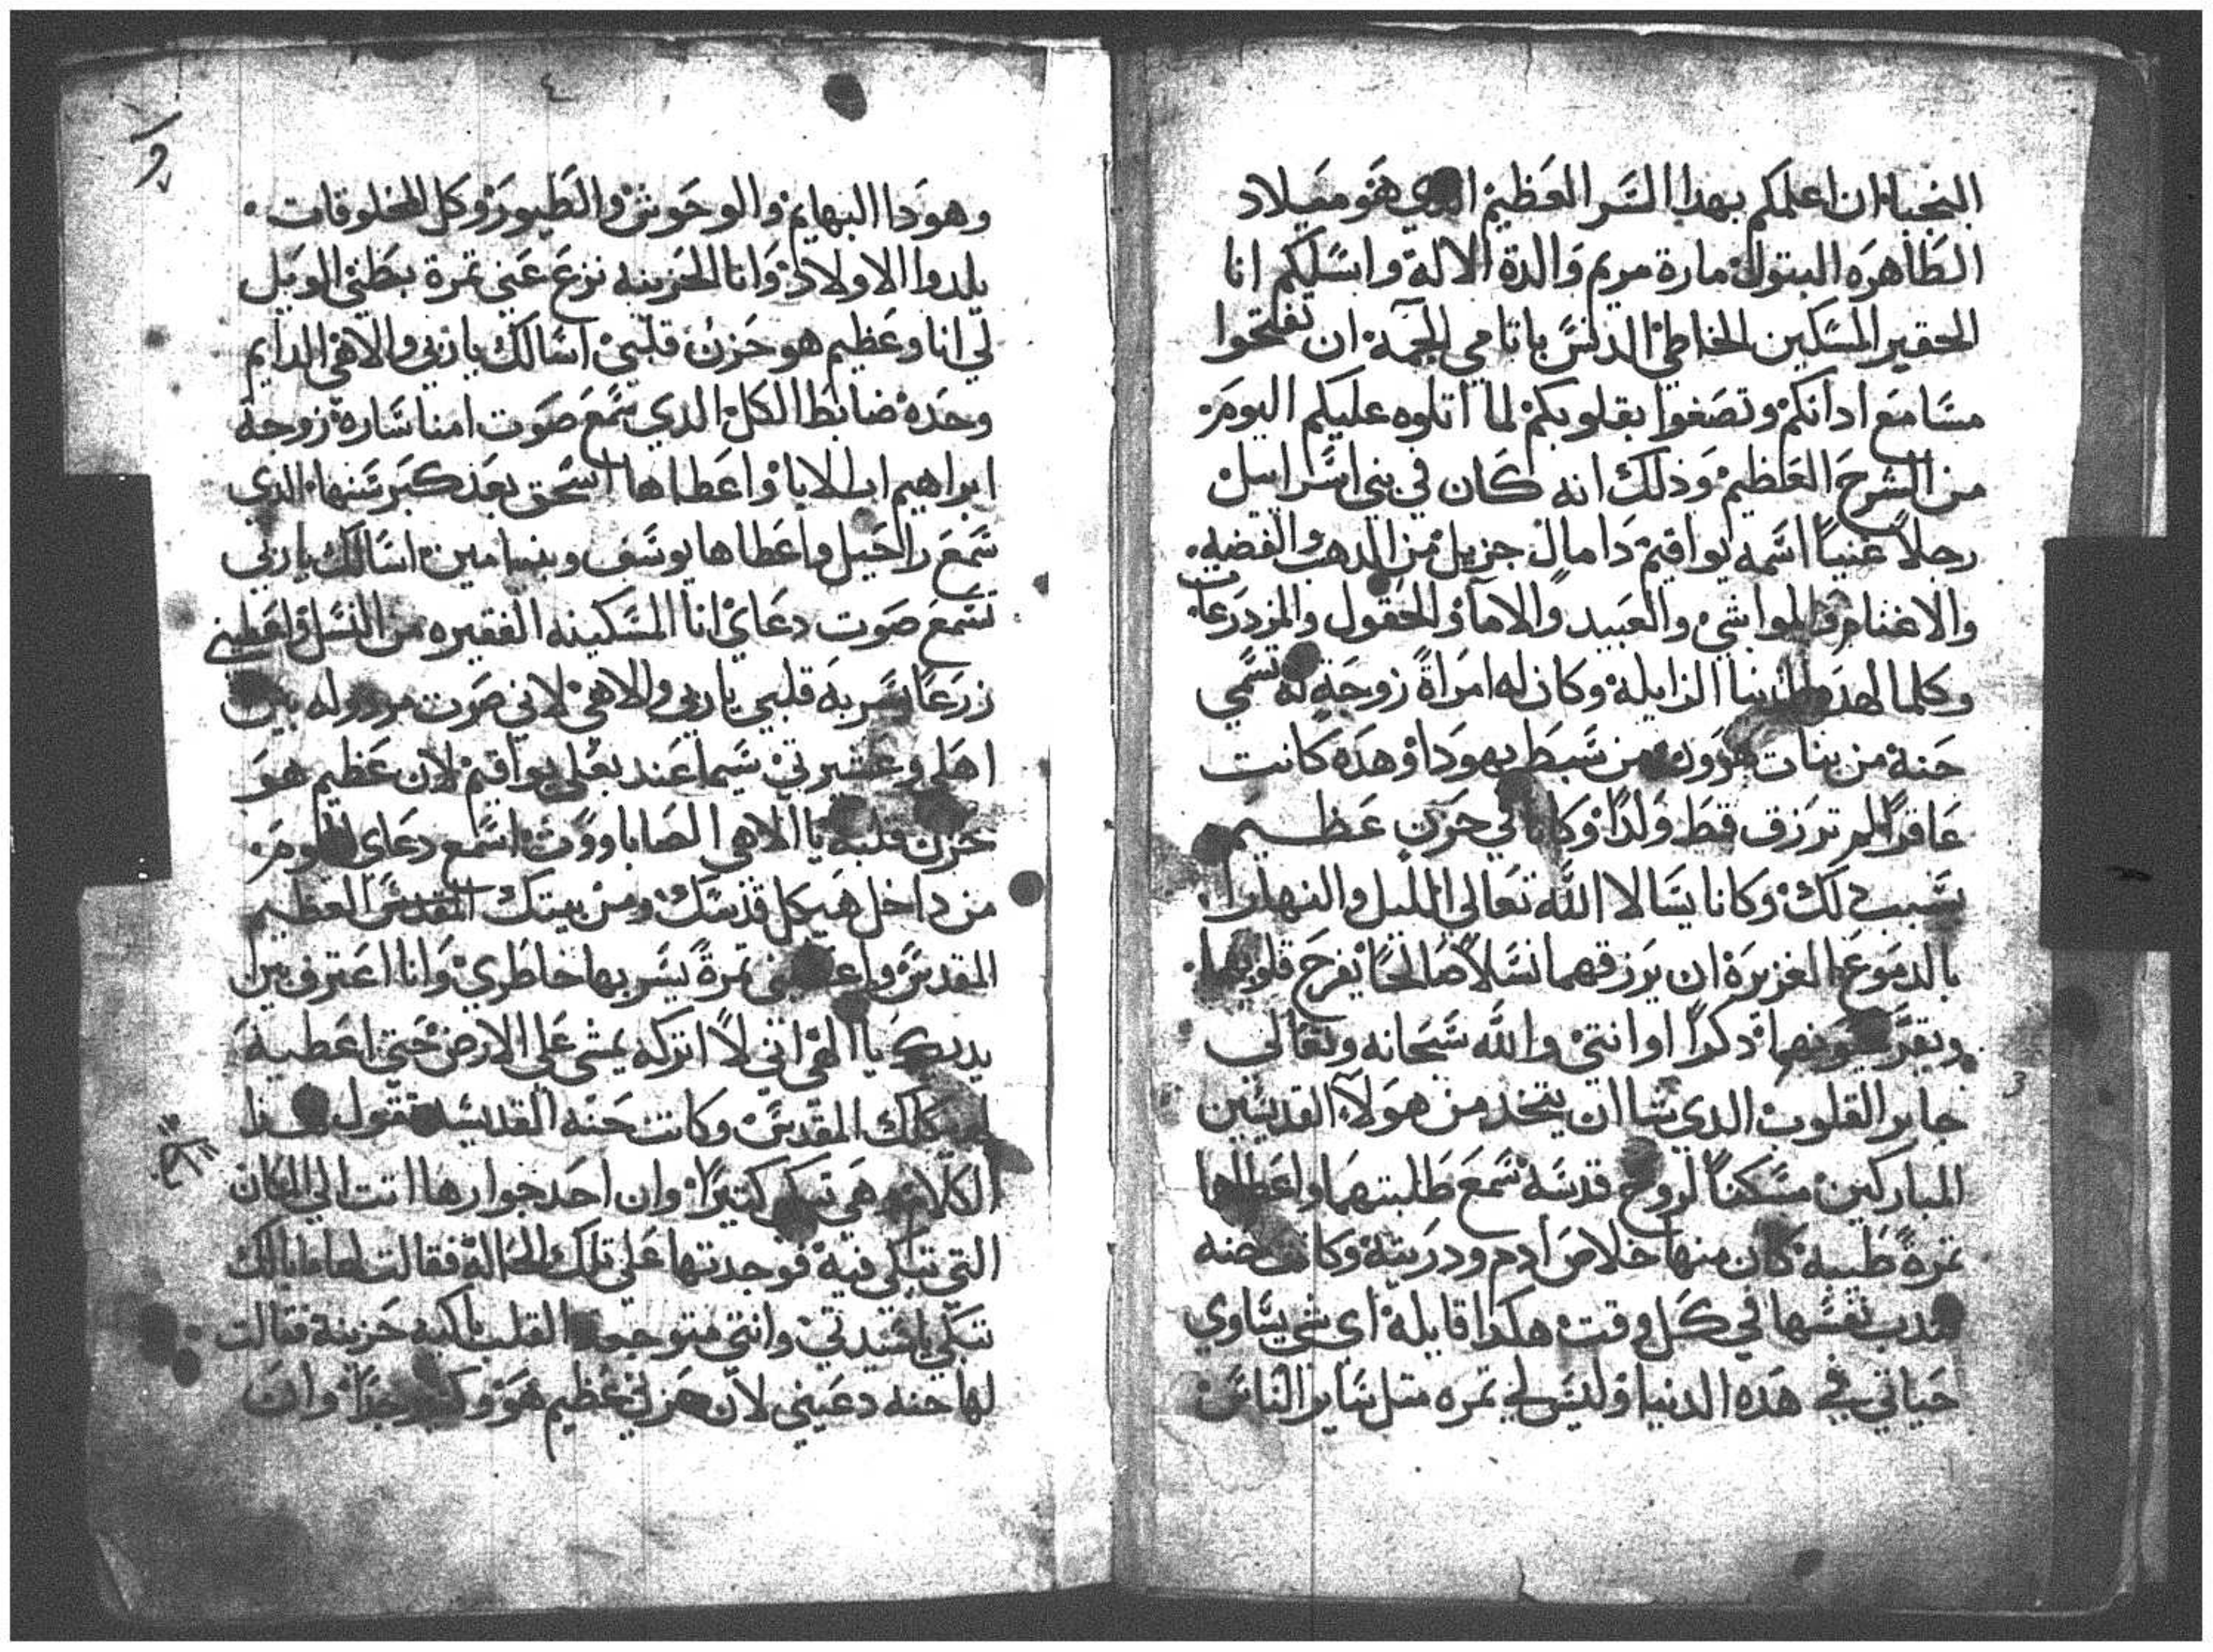 النجباء ان اعلمكم بهدا السر العظيم الدي هو ميلاد
الطاهره البتول مارة مريم والدة الاله واسلكم انا
الحقير المسكين الخاطي الدنس باتامي الجمة ان تفتحوا
مسامع ادانكم وتصغوا بقلوبكم لما اتلوه عليكم اليوم
من الشرح العظيم وذلك انه كان في بني اسراييل
رجلاً غنياً اسمه يواقيم دا مال جزيل من الدهب والفضه
والاغنام والمواشي والعبيد والاما والحقول والمزدرعات
وكلما لهده الدنيا الزايلة وكان له امراةً زوجةٍ له تسمي
حنة من بنات هرون من سبط يهودا وهده كانت
عاقراً لم ترزق قط ولداً وكانا في حزن عظيم
بسبب دلك وكانا يسالا الله تعالي الليل والنهار
بالدموع الغزيرة ان يرزقهما نسلاً صالحاً يفرح قلوبهما
وتقر عيونهما دكراً او انتي والله سبحانه وتعالي
جابر القلوب الدي شا ان يتخد من هولآء القديسين
المباركين مسكناً لروح قدسه سمع طلبتهما واعطاهما
تمرةً طيبة كان منها خلاص ادم ودريته وكانت حنه
تندب نفسها في كل وقت هكدا قايلة اي شي يساوي
حياتي في هده الدنيا وليس لي تمره متل ساير الناس
وهودا البهايم والوحوش والطيور وكل المخلوقات
يلدوا الاولاد وانا الحزينه نزع عني تمرة بطني الويل
لي انا وعظيم هو حزن قلبي اسالك يا ربي والاهي الدايم
وحده ضابط الكل الدي سمع صوت امنا ساره زوجة
ابراهيم اب الابا واعطاها اسحق بعد كبر سنها الدي
سمع راحيل واعطاها يوسف وبنيامين اسالك يا ربي
تسمع صوت دعاي انا المسكينه الفقيره من النسل واعطيني
زرعاً يسر به قلبي يا ربي والاهي لاني صرت مردوله بين
اهلي وعشيرتي سيما عند بعلي يواقيم لان عظيم هو
حزن قلبه يا الاهي الصاباووت اسمع دعاي اليوم
من داخل هيكل قدسك ومن بيتك المقدس العظيم
المقدس واعطيني تمرةً يسر بها خاطري وانا اعترف بين
يديك يا الهي اني لا اتركه يمشي علي الارض حتي اعطيه
لهيكلك المقدس وكانت حنه القديسه تقول هدا
الكلام وهي تبكي كتيراً وان احد جوارها اتت الي المكان
التي تبكي فيه فوجدتها علي تلك الحالة فقالت لها ما بالك
تبكي يا سيدتي وانتي متوجعة القلب باكيه حزينة فقالت
لها حنه دعيني لان حزني عظيم هو وكبير جداً وان